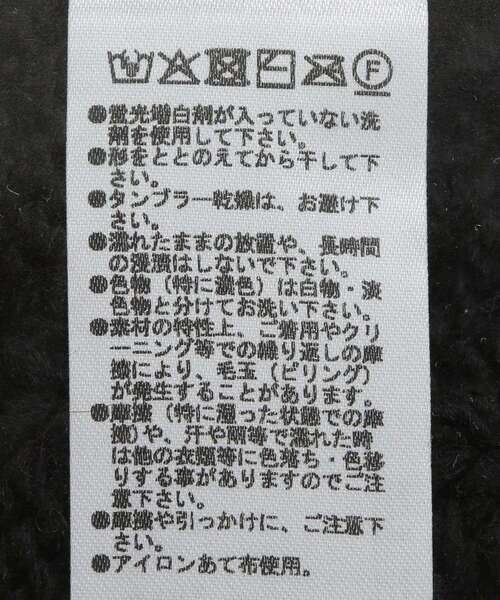 F
●蛍光増白剤が入っていない洗
剤を使用して下さい。
●形をととのえてから干して下
さい。
●タンブラー乾燥は、お避け下
さい。
●濡れたままの放置や、長時間
の浸漬はしないで下さい。
●色物（特に濃色）は白物・淡
色物と分けてお洗い下さい。
●素材の特性上、ご着用やクリ
ーニング等での繰り返しの摩
擦により、毛玉（ピリング）
が発生することがあります。
●摩擦（特に湿った状態での摩
擦）や、汗や雨等で濡れた時
は他の衣類等に色落ち・色移
りする事がありますのでご注
意下さい。
●摩擦や引っかけに、ご注意下
さい。
●アイロンあて布使用。